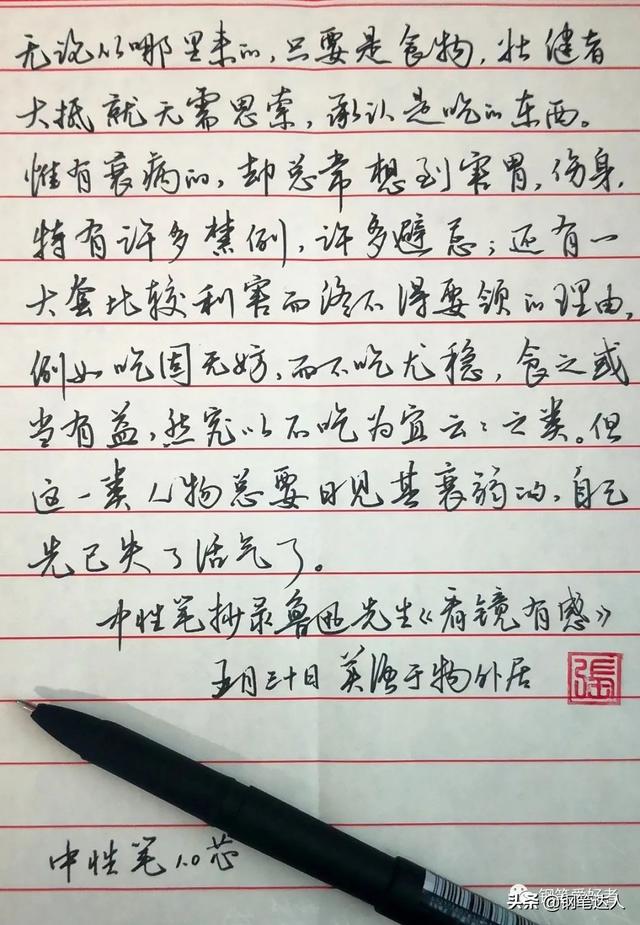 无论从哪里来的，只要是食物，壮健者
大抵就无需思索，承认是吃的东西。
惟有衰病的，却总常想到害胃，伤身，
特有许多禁例，许多避忌；还有一
大套比较利害而终不得要领的理由，
例如吃固无妨，而不吃尤稳，食之或
当有益，然究以不吃为宜云云之类。但
这一类人物总要日见其衰弱的，自己
先已失了活气了。
中性笔抄录鲁迅先生《看镜有感》
五月三十日 英语于物外居
張
中性笔1.0芯
钢笔爱好者
头条@钢笔达人